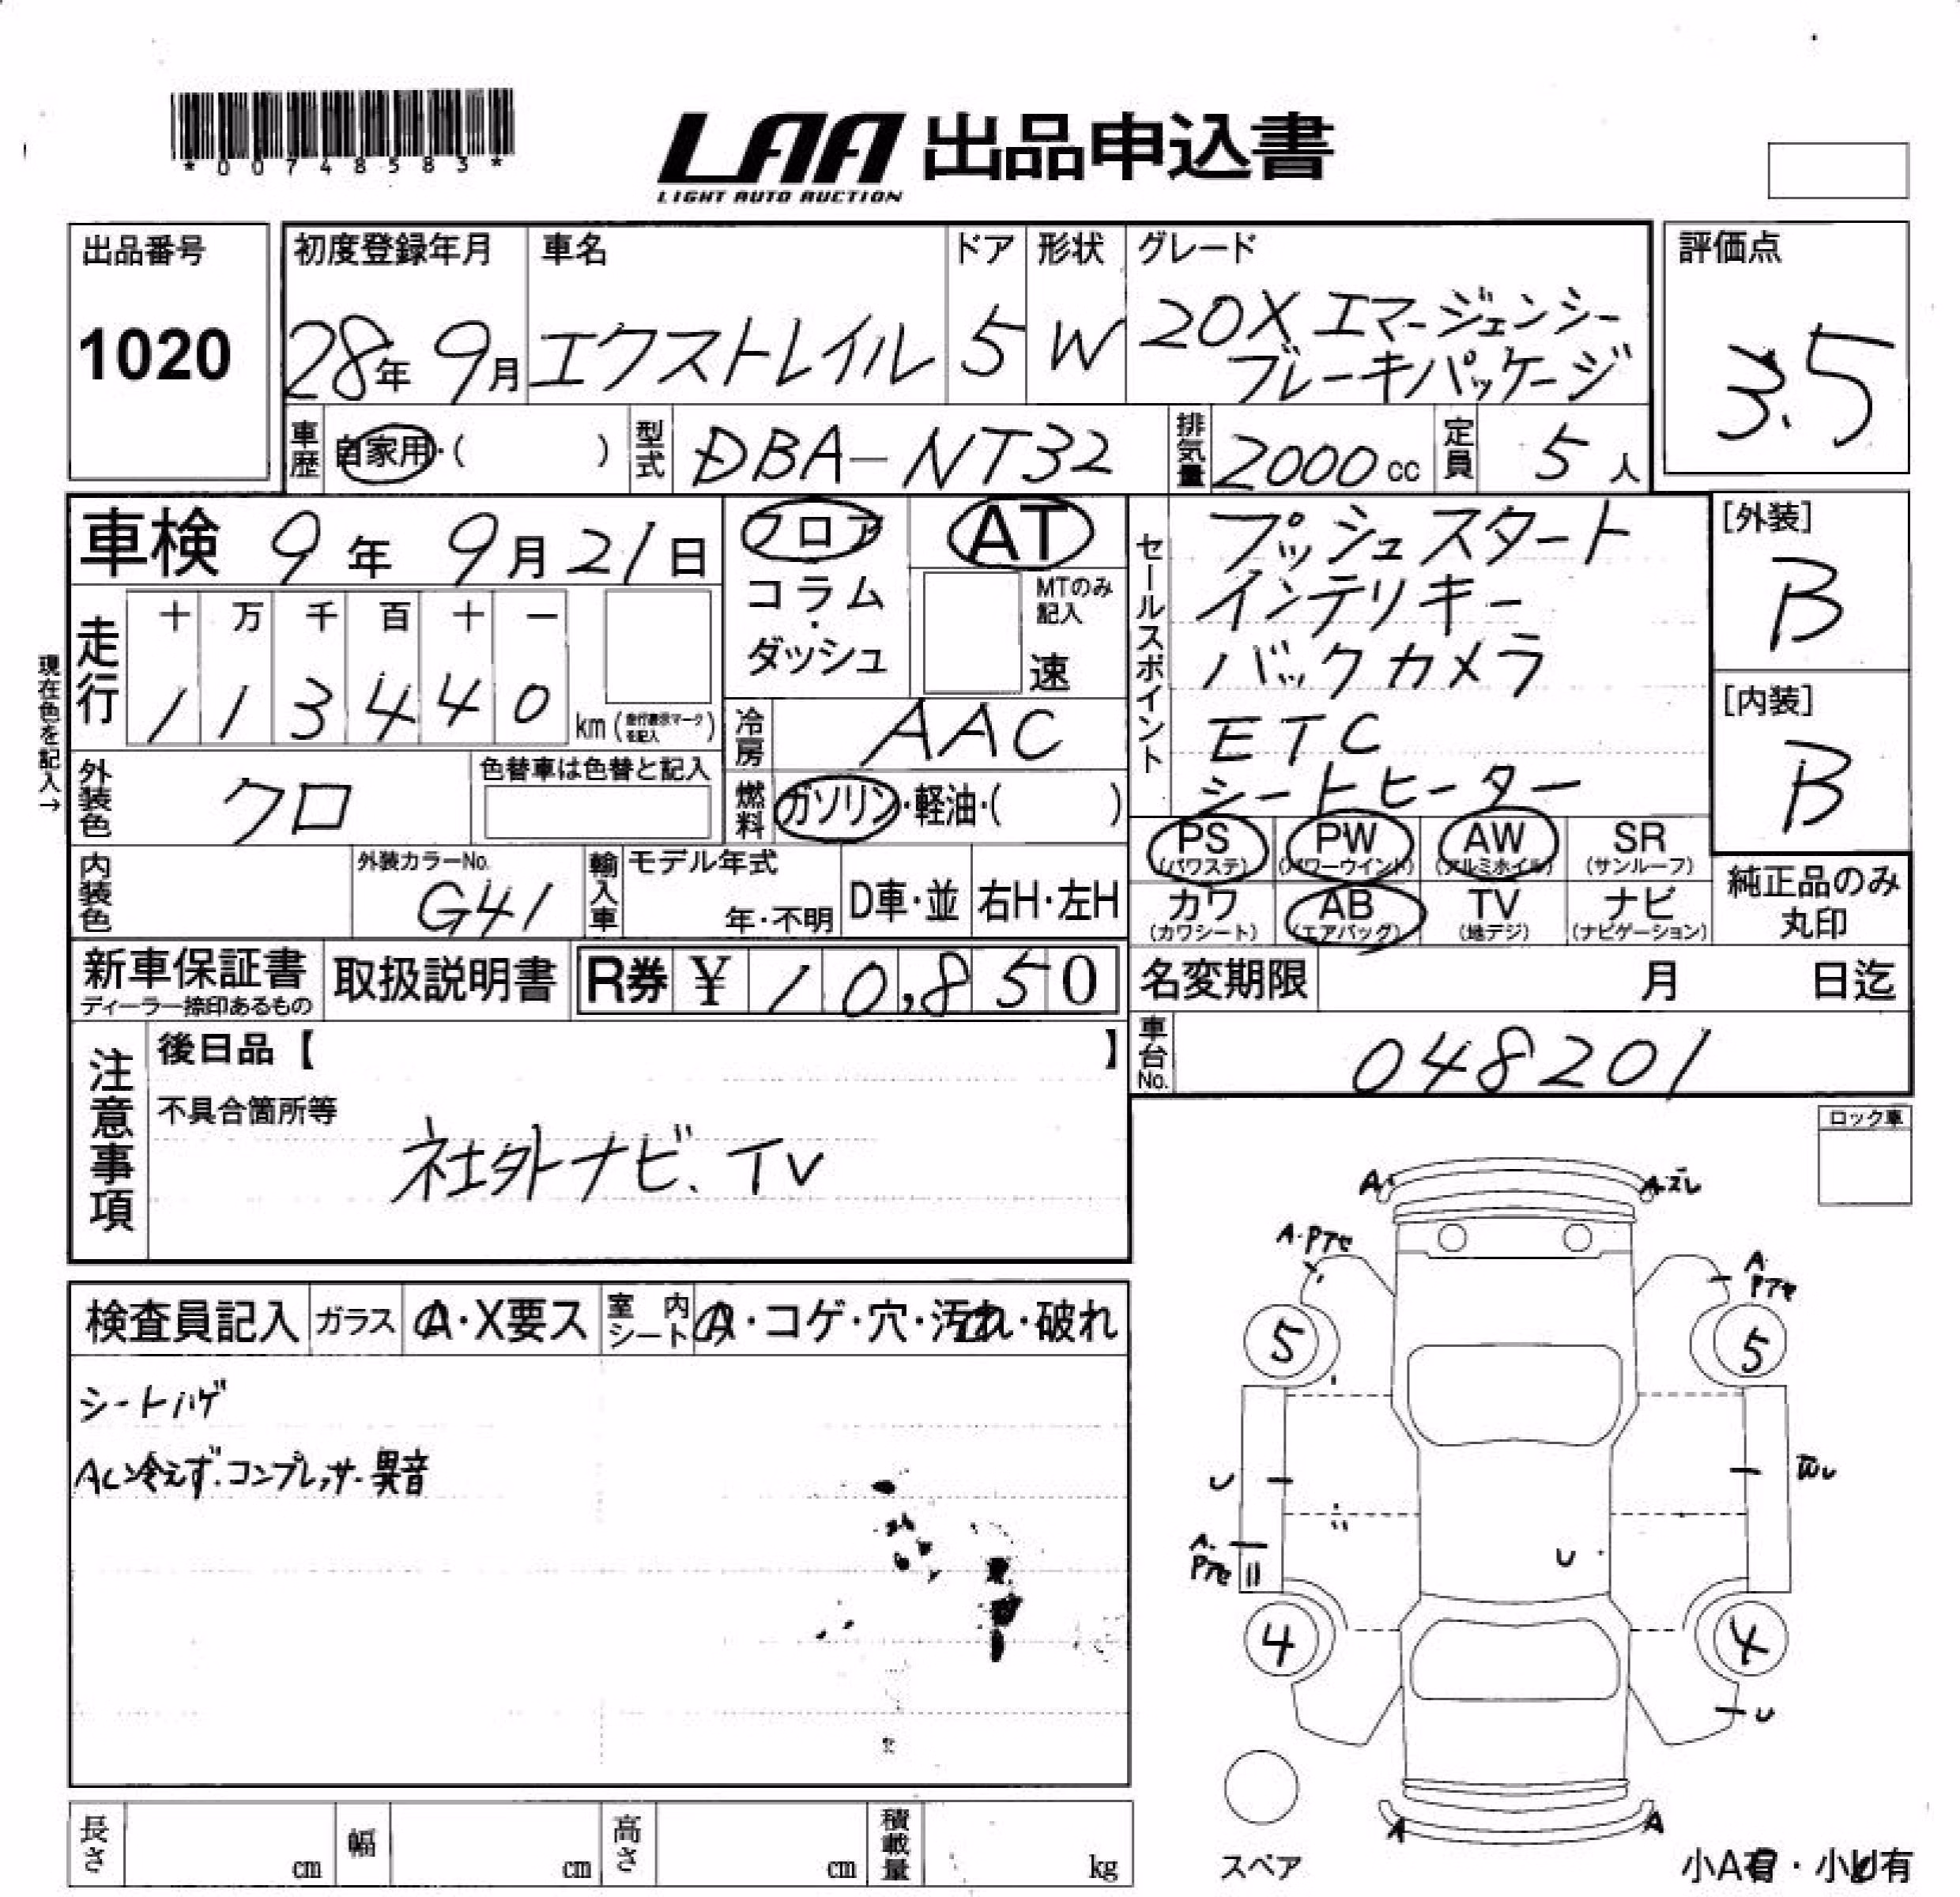 *00748583*
LAA 出品申込書
LIGHT AUTO AUCTION
出品番号
1020
初度登録年月
28年 9月
車名
エクストレイル
ドア
5
形状
W
グレード
20X エマージェンシー
ブレーキパッケージ
評価点
3.5
車歴 自家用・( )
型式 DBA-NT32
排気量 2000cc
定員 5人
車検 9年 9月21日
フロア
コラム・
ダッシュ
AT
MTのみ
記入
速
セールスポイント
プッシュスタート
インテリキー
バックカメラ
ETC
シートヒーター
[外装]
B
[内装]
B
現在色を記入→
走行
十 万 千 百 十 一
1 1 3 4 4 0
km (走行表示マークを記入)
冷房 AAC
外装色 クロ
色替車は色替と記入
燃料 ガソリン・軽油・( )
PS (パワステ)
PW (パワーウインド)
AW (アルミホイル)
SR (サンルーフ)
カワ (カワシート)
AB (エアバッグ)
TV (地デジ)
ナビ (ナビゲーション)
純正品のみ
丸印
内装色
外装カラーNo.
G41
輸入車
モデル年式
年・不明
D車・並
右H・左H
新車保証書
ディーラー捺印あるもの
取扱説明書
R券 ¥ 10,850
名変期限 月 日迄
車台No. 048201
注意事項
後日品【 】
不具合箇所等
社外ナビ、TV
ロック車
検査員記入
ガラス A・X要ス
室内シート A・コゲ・穴・汚れ・破れ
シートハゲ
AC冷えず.コンプレッサー異音
A
A.ズレ
A.Pアセ
A.
Pアセ
5
5
U
A.
Pアセ
U
4
4
U
A
A
スペア
小A有・小U有
長さ cm
幅 cm
高さ cm
積載量 kg